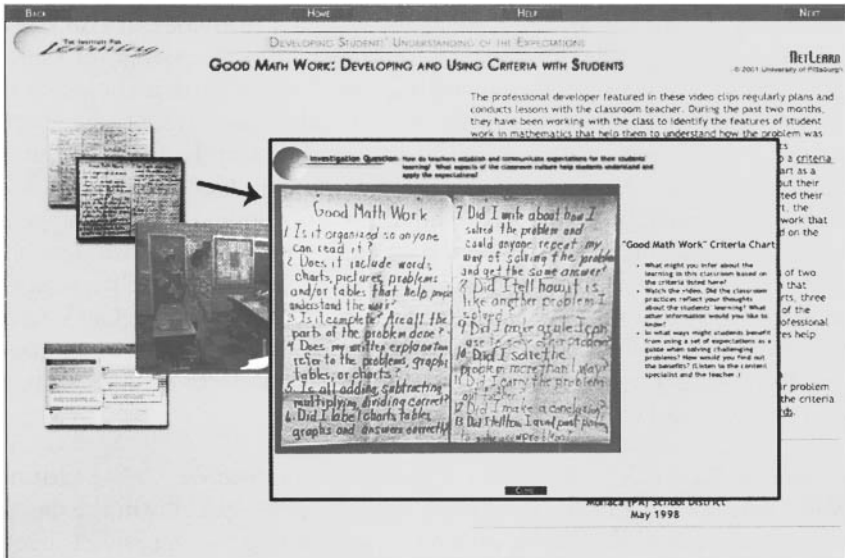 BACK HOME HELP NEXT
The Institute For
Learning
DEVELOPING STUDENTS' UNDERSTANDING OF THE EXPECTATIONS
GOOD MATH WORK: DEVELOPING AND USING CRITERIA WITH STUDENTS
NETLEARN
© 2001 University of Pittsburgh
The professional developer featured in these video clips regularly plans and
conducts lessons with the classroom teacher. During the past two months,
they have been working with the class to identify the features of student
work in mathematics that help them to understand how the problem was
Investigation Question: How do teachers establish and communicate expectations for their students'
learning? What aspects of the classroom culture help students understand and
apply the expectations?
Good Math Work
1 Is it organized so anyone
can read it?
2 Does it include words,
charts, pictures, problems
and/or tables that help
understand the work?
3 Is it complete? Are all the
parts of the problem done?
4 Does my written explanation
refer to the problems, graphs,
tables, or charts?
5. Is all adding, subtracting
multiplying, dividing correct?
6. Did I label charts, tables,
graphs and answers correctly?
7 Did I write about how I
solved the problem and
could anyone repeat my
way of solving the problem
and get the same answer?
8 Did I tell how it is
like another problem I
solved
9 Did I make a rule I can
use to solve other problems
10 Did I solve the
problem more than 1 way?
11 Did I carry the problem
out further
12 Did I make a conclusion?
13 Did I tell how I used
"Good Math Work" Criteria Chart
• What might you infer about the
learning in this classroom based on
the criteria listed here?
• Watch the video. Did the classroom
practices reflect your thoughts
about the students' learning? What
other information would you like to
know?
• In what ways might students benefit
from using a set of expectations as a
guide when solving challenging
problems? How would you find out
the benefits? (Listen to the content
specialist and the teacher.)
a criteria
art as a
out their
ted their
t, the
work that
d on the
s of two
that
rts, three
of the
ofessional
res help
ir problem
the criteria
CLOSE
Monaca (PA) School District
May 1998